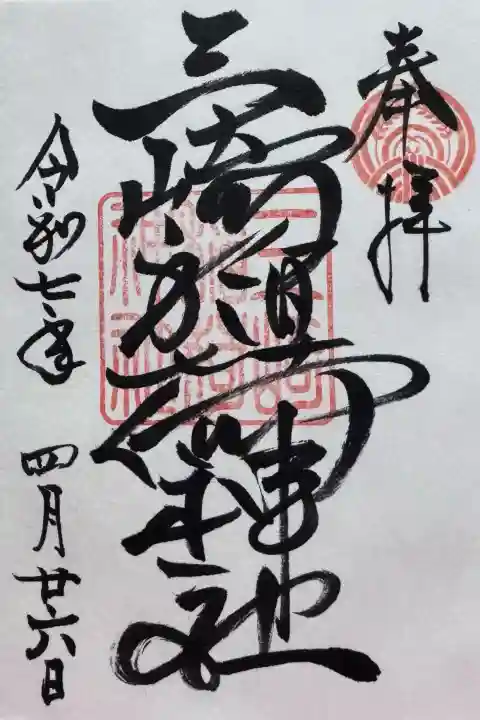 奉拝
三崎稲荷神社
令和七年 四月廿六日